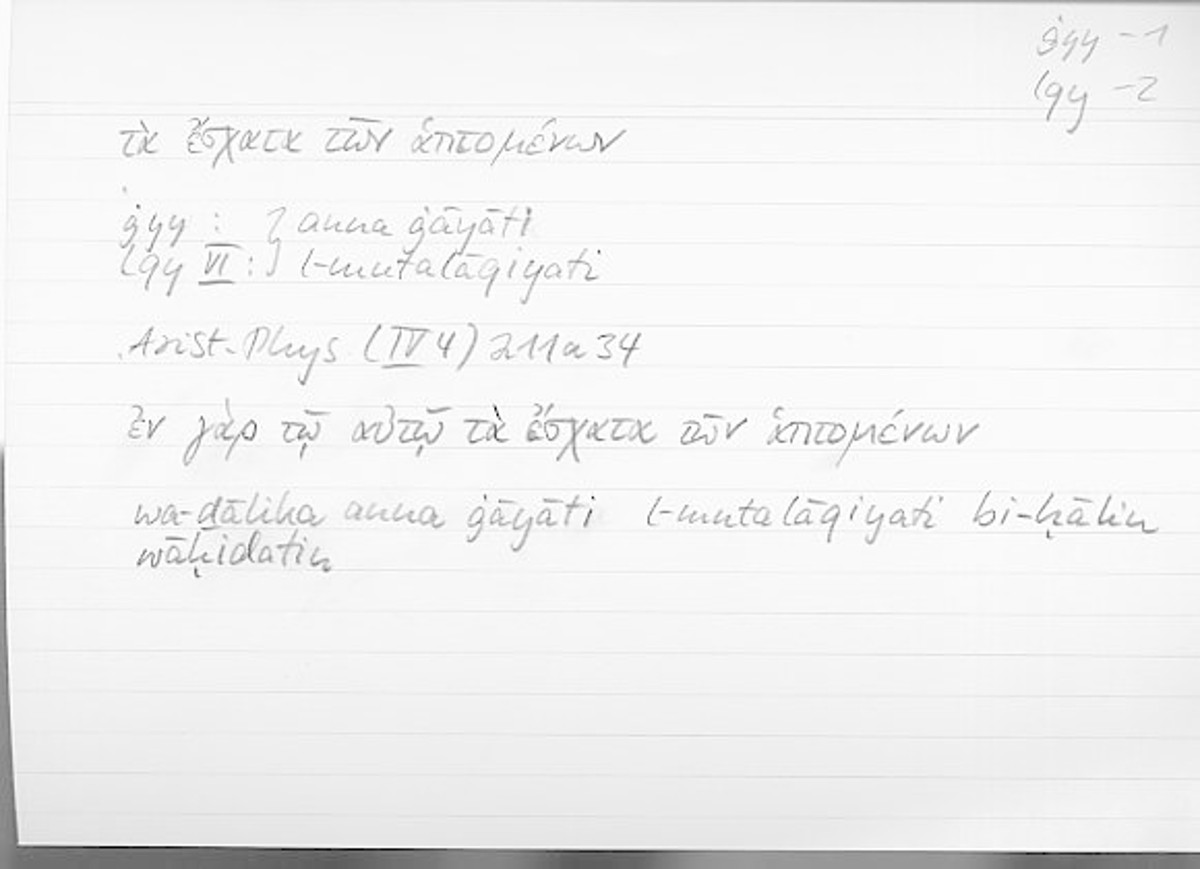 ġyy -1
lqy -2
τὰ ἔσχατα τῶν ἁπτομένων
ġyy : } anna ġāyāti
lqy VI : } l-mutalāqiyati
Arist. Phys. (IV 4) 211a 34
ἐν γὰρ τῷ αὐτῷ τὰ ἔσχατα τῶν ἁπτομένων
wa-ḏālika anna ġāyāti l-mutalāqiyati bi-ḥālin
wāḥidatin